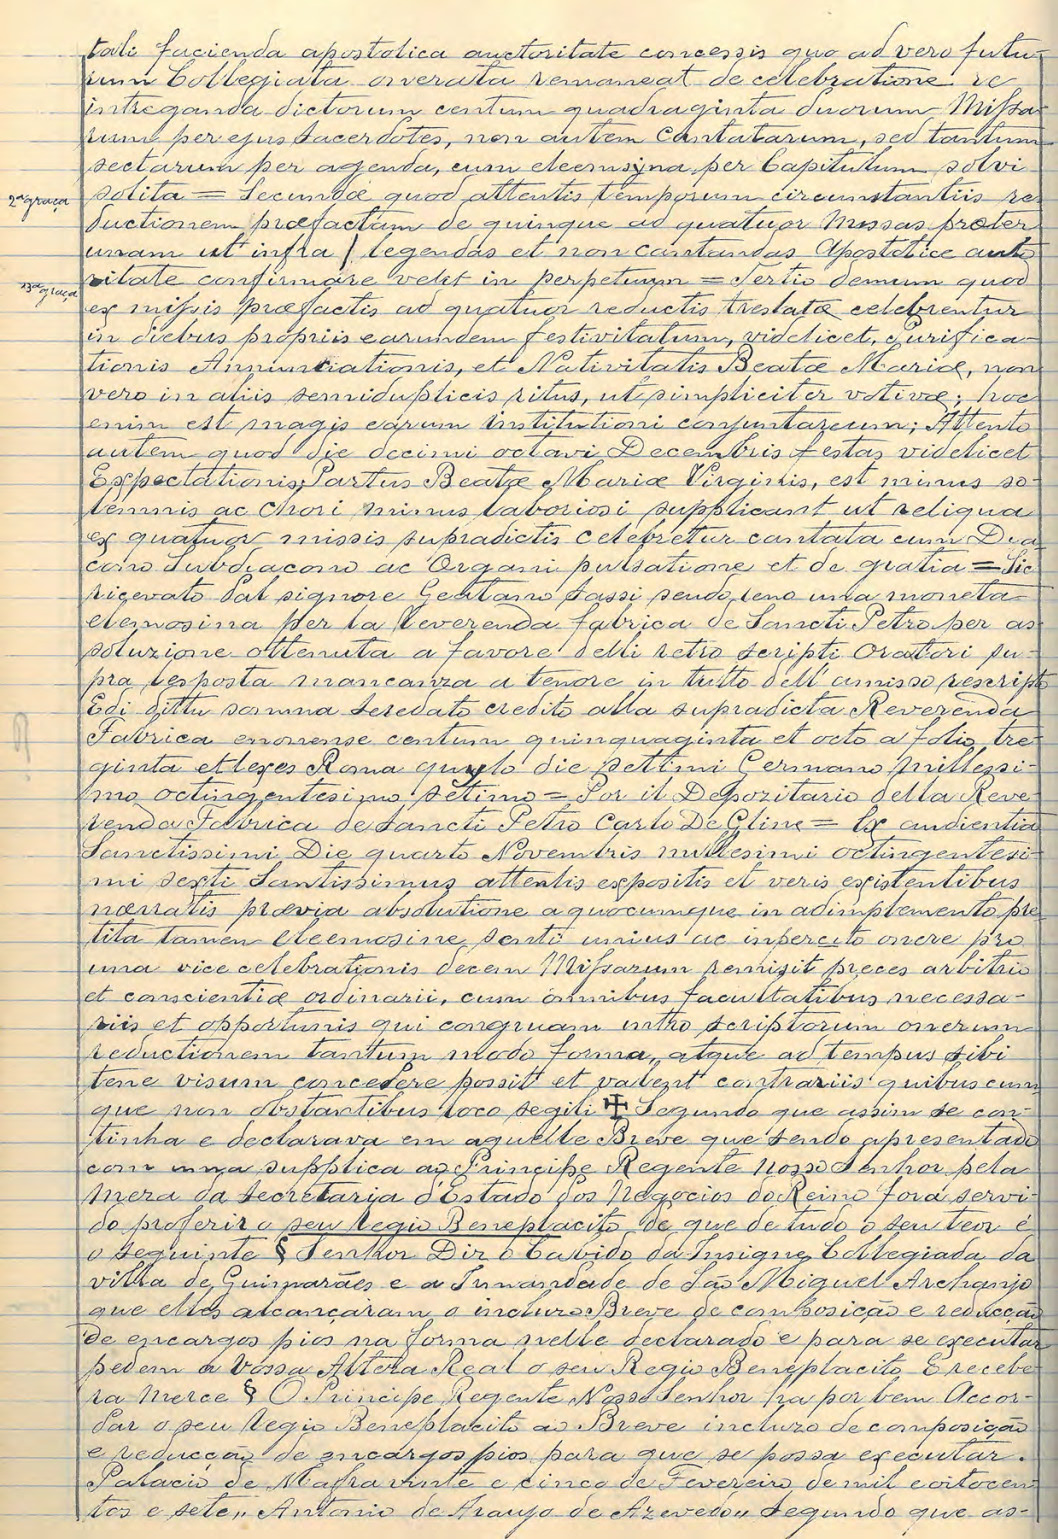 tali facienda apostolica auctoritate concessis quo ad vero futu-
rum Collegiata onerata remaneat de celebratione re
intreganda dictorum centum quadraginta duorum Missa
rum per ejus sacerdotes, non autem Cantatarum, sed tantum
sectarum per agenda, cum eleemsyna per Capitulum solvi
2ª graça solita = Secundæ quod attentis temporum circumstantiis re
ductionem præfactam de quinque ad quatuor Missas præter
unam ut infra / legendas et non cantandas Apostolice auto
3ª graça ritate confirmare velit in perpetuum = Tertio demum quod
ex missis præfactis ad quatuor reductis trestatæ celebrentur
in diebus propriis earundem festivitatum, videlicet, Purifica-
tionis Annunciationis, et Nativitatis Beatæ Mariæ, non
vero in aliis semiduplicis ritus, ut simpliciter votivæ; hoc
enim est magis earum Institutioni conjuntareum; Attento
autem quod die decimi octavi Decembris festas videlicet
Expectationis Partus Beatæ Mariæ Virginis, est minus so-
lemnis ac Chori minus laboriosi supplicant ut reliqua
ex quatuor missis supradictis celebretur cantata cum Dia
cono Subdiacono ac Organi pulsatione et de gratia = Sic
ricevato dal signore Geatano Sassi sendo, eno una moneta
elemosina per la Reverenda fabrica de Sancti Petro per as
soluzione ottenuta a favore delli retro scripti Oratori su-
pra lesposta mancanza a tenore in tutto dell' amisso rescripto
Edi dittu somma seredato credito alla supradicta Reverenda
Fabrica enonense centum quinquaginta et octo a folio tre
ginta et lexes Roma questo die settimi Germano millessi-
mo octingentesimo setimo = Por il Depozitario della Reve-
renda Fabrica de Sancti Petro Carlo De Gline = Ex audientia
Sanctissimi Die quarto Novembris millesimi octingentesi-
mi sexti Santissimus attentis expositis et veris existentibus
narratis prævia absolutione a quocumque in adimplemento pre
tita tamen eleemosine senti unius ac imperato onere pro
una vice celebrationis decem Missarum remisit preces arbitrio
et conscientiæ ordinarii, cum omnibus facultatibus necessa-
riis et opportunis qui congruam intro scriptorum onerum
reductionem tantum modo forma, atque ad tempus sibi
tene visum concedere possit et valent contrariis quibuscum
que non obstantibus loco segili ✠ Segundo que assim se con-
tinha e declarava em aquelle Breve que sendo apresentado
com uma supplica ao Principe Regente Nosso Senhor pela
Mera da Secretaria d'Estado dos Negocios do Reino fora servi-
do proferir o seu Regio Beneplacito de que de tudo o seu teor é
o seguinte § Senhor Diz o Cabido da Insigne Collegiada da
villa de Guimarães e a Irmandade de São Miguel Archanjo
que elles alcançaram o incluzo Breve de composição e reducção
de encargos pios na forma nelle declarado e para se executar
pedem a Vossa Alteza Real o seu Regio Beneplacito E recebe-
ra Merce § O Principe Regente Nosso Senhor ha por bem Accor-
dar o seu Regio Beneplacito ao Breve incluzo de composição
e reducção de encargos pios para que se possa executar.
Palacio de Mafra vinte e cinco de Fevereiro de mil e oitocen
tos e sete,, Antonio de Araujo de Azevedo,, Segundo que as-